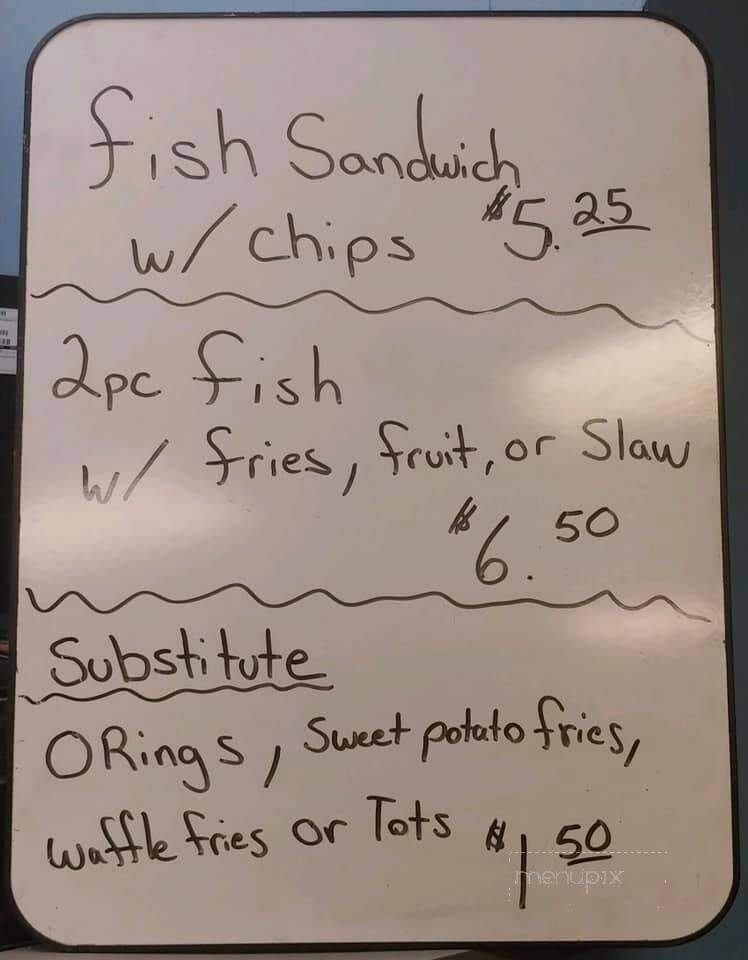 fish Sandwich
w/ chips $5.25
2pc fish
w/ fries, fruit, or Slaw
$6.50
Substitute
ORings, Sweet potato fries,
waffle fries or Tots $1 50
menupix